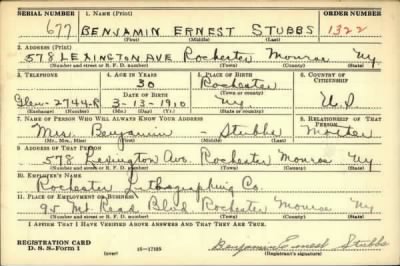 SERIAL NUMBER 1. NAME (Print) ORDER NUMBER
677 BENJAMIN ERNEST STUBBS 1322
(First) (Middle) (Last)
2. ADDRESS (Print)
578 LEXINGTON AVE Rochester Monroe Ny
(Number and street or R. F. D. number) (Town) (County) (State)
3. TELEPHONE 4. AGE IN YEARS 5. PLACE OF BIRTH 6. COUNTRY OF CITIZENSHIP
30 Rochester
DATE OF BIRTH (Town or county)
Glen-2744-R 3-13-1910 Ny. U.S
(Exchange) (Number) (Mo.) (Day) (Yr.) (State or country)
7. NAME OF PERSON WHO WILL ALWAYS KNOW YOUR ADDRESS 8. RELATIONSHIP OF THAT PERSON
Mrs. Benjamin - Stubbs Mother
(Mr., Mrs., Miss) (First) (Middle) (Last)
9. ADDRESS OF THAT PERSON
578 Lexington Ave. Rochester Monroe Ny
(Number and street or R. F. D. number) (Town) (County) (State)
10. EMPLOYER'S NAME
Rochester Lithographing Co.
11. PLACE OF EMPLOYMENT OR BUSINESS
95 Mt. Read Blvd Rochester Monroe Ny
(Number and street or R. F. D. number) (Town) (County) (State)
I AFFIRM THAT I HAVE VERIFIED ABOVE ANSWERS AND THAT THEY ARE TRUE.
REGISTRATION CARD
D. S. S. Form 1 (over) 16-17105 Benjamin Ernest Stubbs
(Registrant's signature)